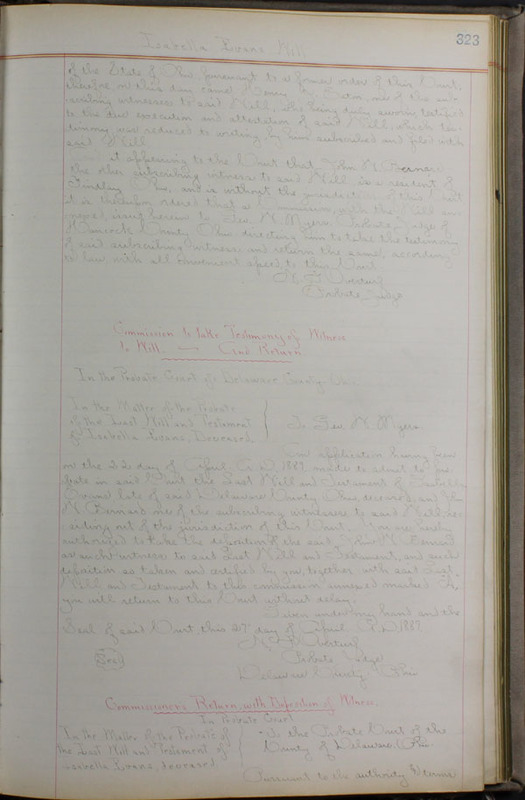 323
Isabella Evans Will.
of the Estate of Ohio, pursuant to a former order of this Court;
therefore on this day came Henry Eaton, one of the sub-
scribing witnesses to said Will, who being duly sworn testified
to the due execution and attestation of said Will, which tes-
timony was reduced to writing by him subscribed and filed with
said Will.
It appearing to the Court that John N.
the other subscribing witness to said Will is a resident of
Findlay Ohio, and is without the jurisdiction of this Court
it is therefore ordered that a commission, with the Will an-
nexed, issue herein to Geo. N. Myers Probate Judge of
Hancock County Ohio directing him to take the testimony
of said subscribing witness, and return the same, according
to law, with all convenient speed to this Court.
Probate Judge
Commission to take Testimony of Witness
to Will. — And Return
In the Probate Court of Delaware County Ohio.
In the Matter of the Probate
of the Last Will and Testament
of Isabella Evans, Deceased
To Geo. N. Myers
Due application having been
on the 22 day of April A.D. 1887. made to admit to pro-
bate in said Court the Last Will and Testament of Isabella
Evans late of said Delaware County Ohio, deceased, and John
N. one of the subscribing witnesses to said Will, re-
siding out of the jurisdiction of this Court. You are hereby
authorized to take the deposition of the said John N.
as such witness to said Last Will and Testament, and such
deposition so taken and certified by you, together with said Last
Will and Testament to this commission annexed marked "A",
you will return to this Court without delay.
Given under my hand and the
Seal of said Court, this 27" day of April A.D. 1887.
(Seal)
Probate Judge
Delaware County Ohio
Commissioners Return, with Deposition of Witness.
In Probate Court
In the Matter of the Probate of
the Last Will and Testament of
Isabella Evans, deceased
To the Probate Court of the
County of Delaware, Ohio.
Pursuant to the authority & terms